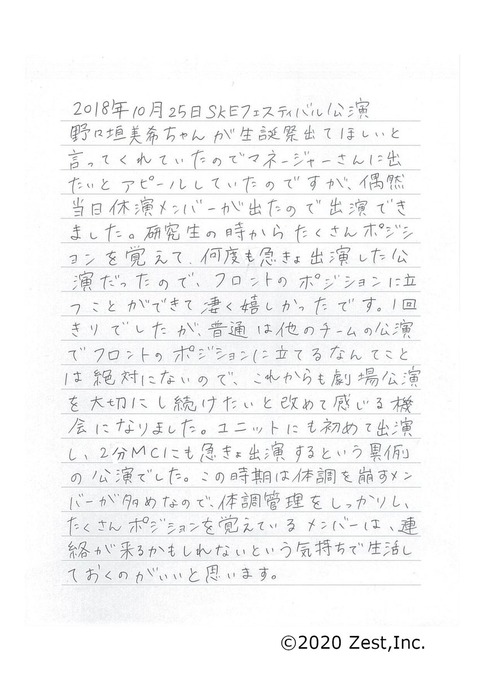 2018年10月25日SKEフェスティバル公演
野々垣美希ちゃんが生誕祭出てほしいと
言ってくれていたのでマネージャーさんに出
たいとアピールしていたのですが、偶然
当日休演メンバーが出たので出演でき
ました。研究生の時からたくさんポジシ
ョンを覚えて、何度も急きょ出演した公
演だったので、フロントのポジションに立
つことができて凄く嬉しかったです。1回
きりでしたが、普通は他のチームの公演
でフロントのポジションに立てるなんてこと
は絶対にないので、これからも劇場公演
を大切にし続けたいと改めて感じる機
会になりました。ユニットにも初めて出演
し、2分MCにも急きょ出演するという異例
の公演でした。この時期は体調を崩すメン
バーが多めなので、体調管理をしっかりし、
たくさんポジションを覚えているメンバーは、連
絡が来るかもしれないという気持ちで生活し
ておくのがいいと思います。
©2020 Zest,Inc.